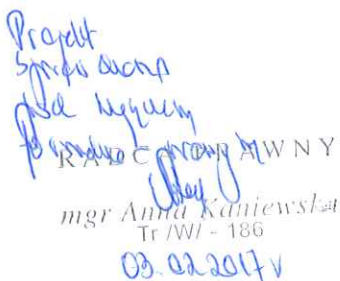 Projekt
sprawdzono
pod względem
formalno prawnym
RADCA PRAWNY
mgr Anna Kaniewska
Tr /W/ - 186
03.02.2017 r